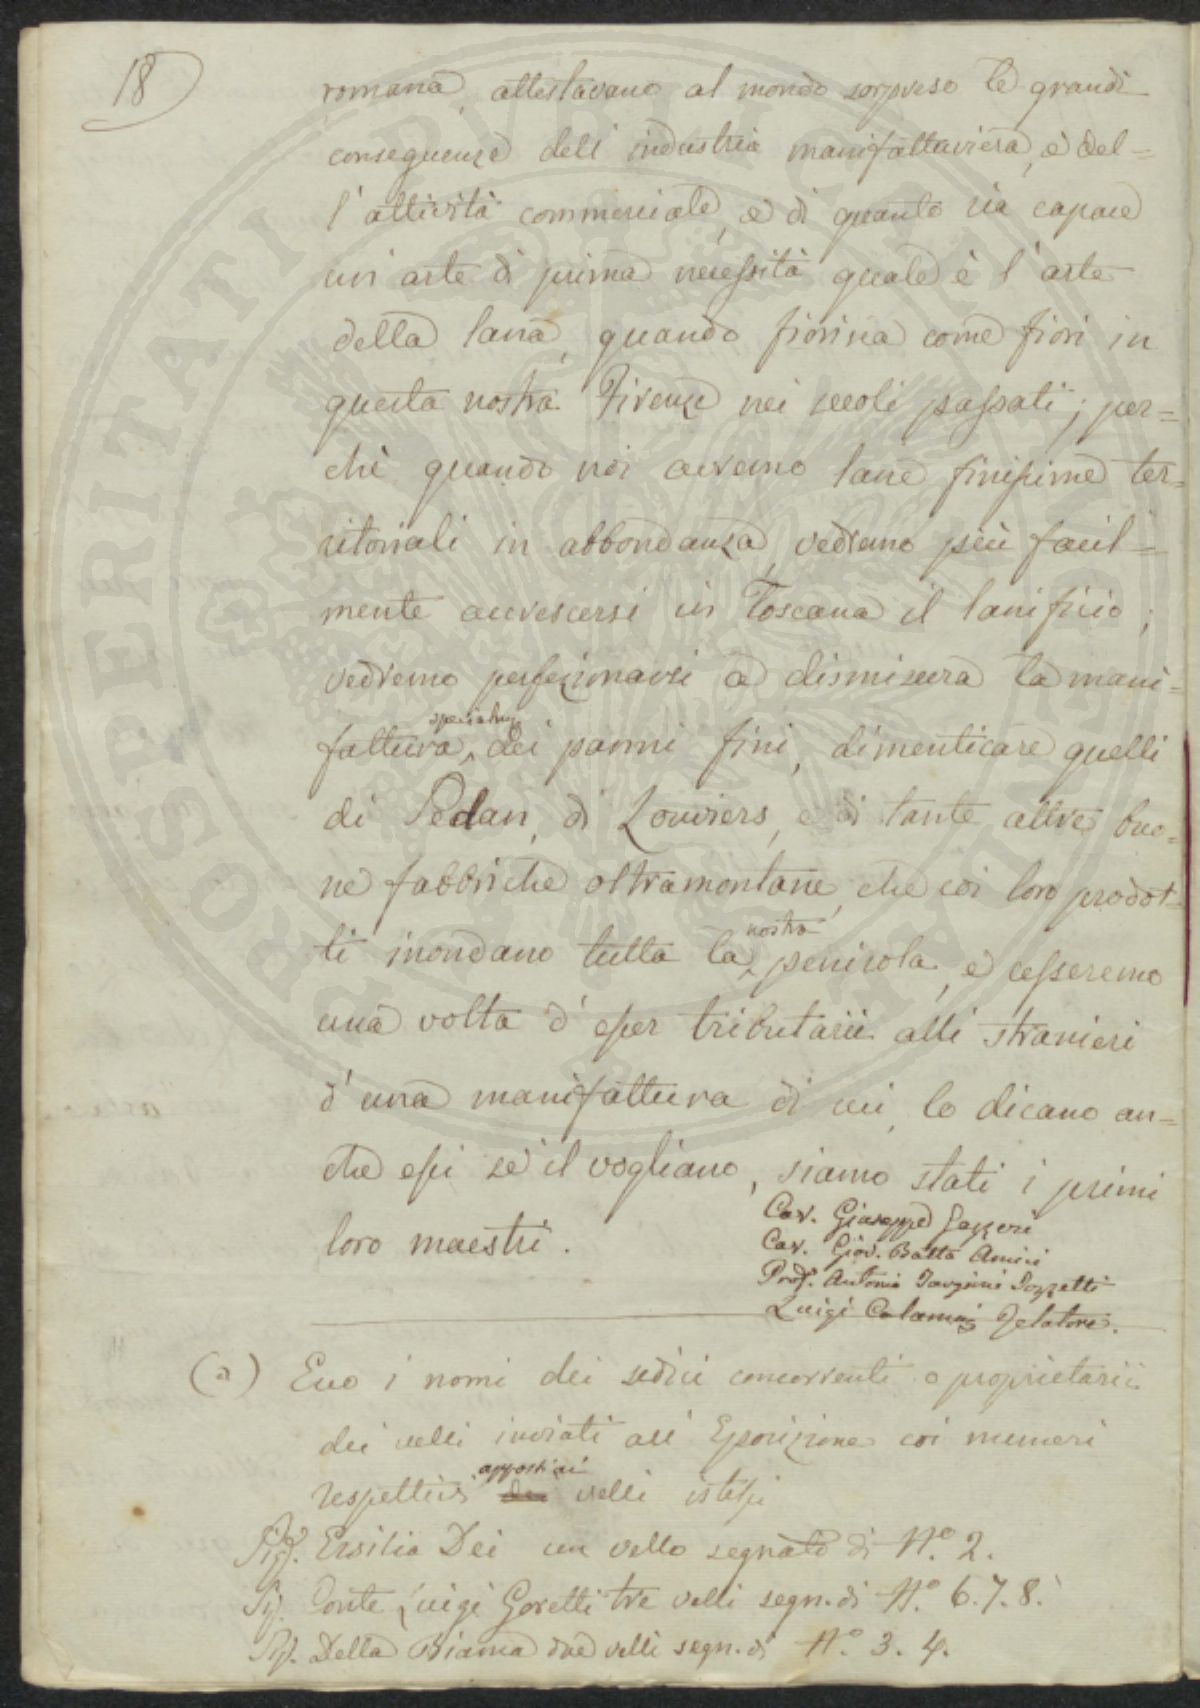 18
romana, attestavano al mondo sorpreso le grandi
conseguenze dell'industria manifatturiera, e del=
l'attività commerciale, e di quanto sia capace
un'arte di prima necessità quale è l'arte
della lana, quando fiorisca come fiorì in
questa nostra Firenze nei secoli passati; per=
chè quando noi avremo lane finissime ter=
ritoriali in abbondanza, vedremo più facil=
mente accrescersi in Toscana il lanificio;
vedremo perfezionarsi a dismisura la mani=
fattura, dei panni fini, dimenticare quelli
di Sedan, di Louviers, e di tante altre buo=
ne fabbriche oltramontane, che coi loro prodot=
ti inondano tutta la nostra penisola, e cesseremo
una volta d'esser tributarii alli stranieri
d'una manifattura di cui, lo dicano an=
che essi se il vogliano, siamo stati i primi
loro maestri.
Cav. Giuseppe Gazzeri
Cav. Giov. Batta Amici
Prof. Antonio Targioni Tozzetti
Luigi Calamai Relatore.
(a) Ecco i nomi dei sedici concorrenti o proprietarii
dei velli inviati all'Esposizione coi numeri
respettivi apposti ai velli istessi
Sig. Ersilia Dei un vello segnato di N.° 2.
Sig. Conte Luigi Goretti tre velli segn. di N.° 6. 7. 8.
Sig. Della due velli segn. di N.° 3. 4.
PROSPERITATI PUBLICAE